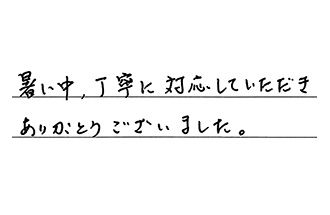 暑い中,丁寧に対応していただき
ありがとうございました。